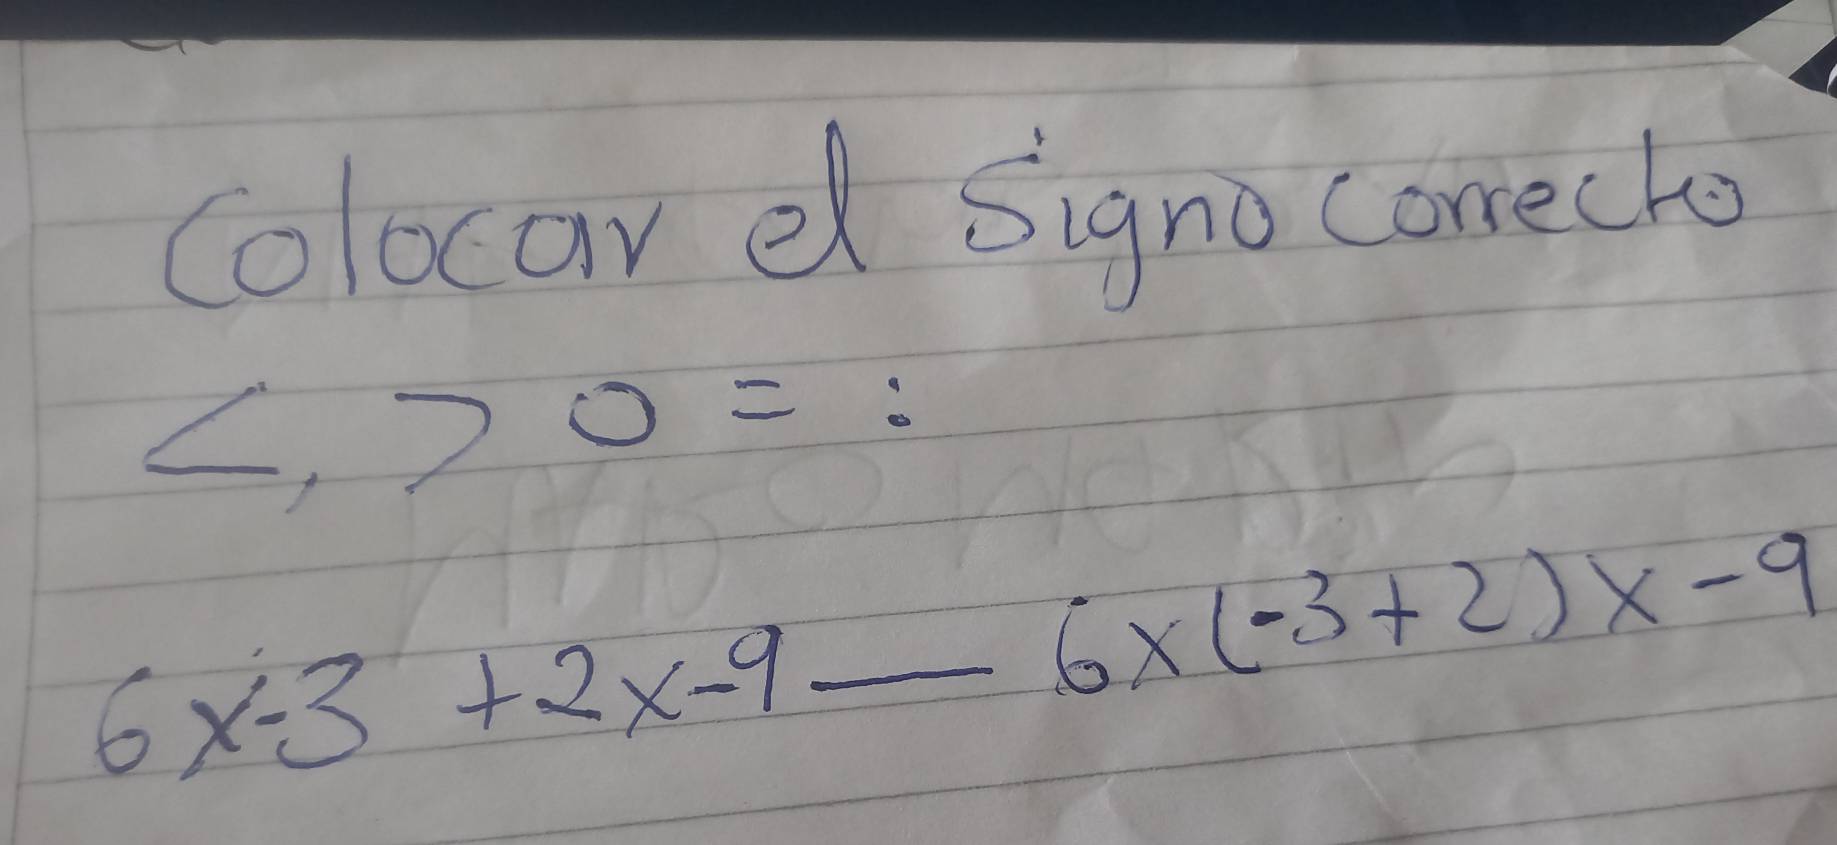 Colocar el Signo correcto
<, > o = :
6 x -3 + 2 x -9 — 6 x (-3 + 2) x -9